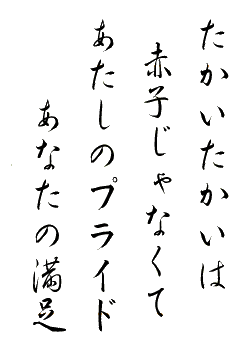 たかいたかいは
赤子じゃなくて
あたしのプライド
あなたの満足